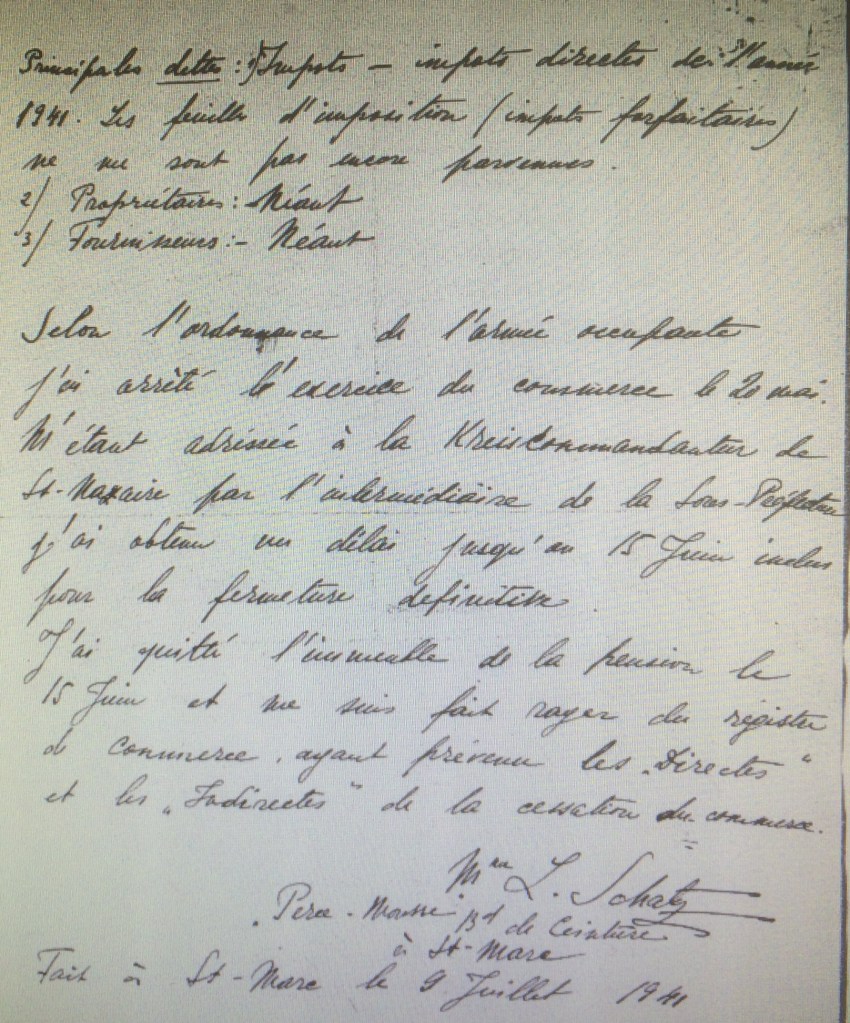 Principales dettes : 1) Impots – impots directes de l'année
1941. Les feuilles d'imposition (impots forfaitaires)
ne me sont pas encore parvenues.
2) Propriétaires : Néant
3) Fournisseurs :- Néant
Selon l'ordonnance de l'armée occupante
j'ai arrêté l'exercice du commerce le 20 mai.
M'étant adressée à la Kreiscommandantur de
St-Nazaire par l'intermédiaire de la Sous-Préfecture
j'ai obtenu un délai jusqu'au 15 Juin inclus
pour la fermeture definitive.
J'ai quitté l'immeuble de la pension le
15 Juin et me suis fait rayer du régistre
de commerce, ayant prévenu les „Directes"
et les „Indirectes" de la cessation du commerce.
Mme L. Schatz
Perce-Mousse Bd de Ceinture
à St-Marc
Fait à St-Marc le 9 Juillet 1941